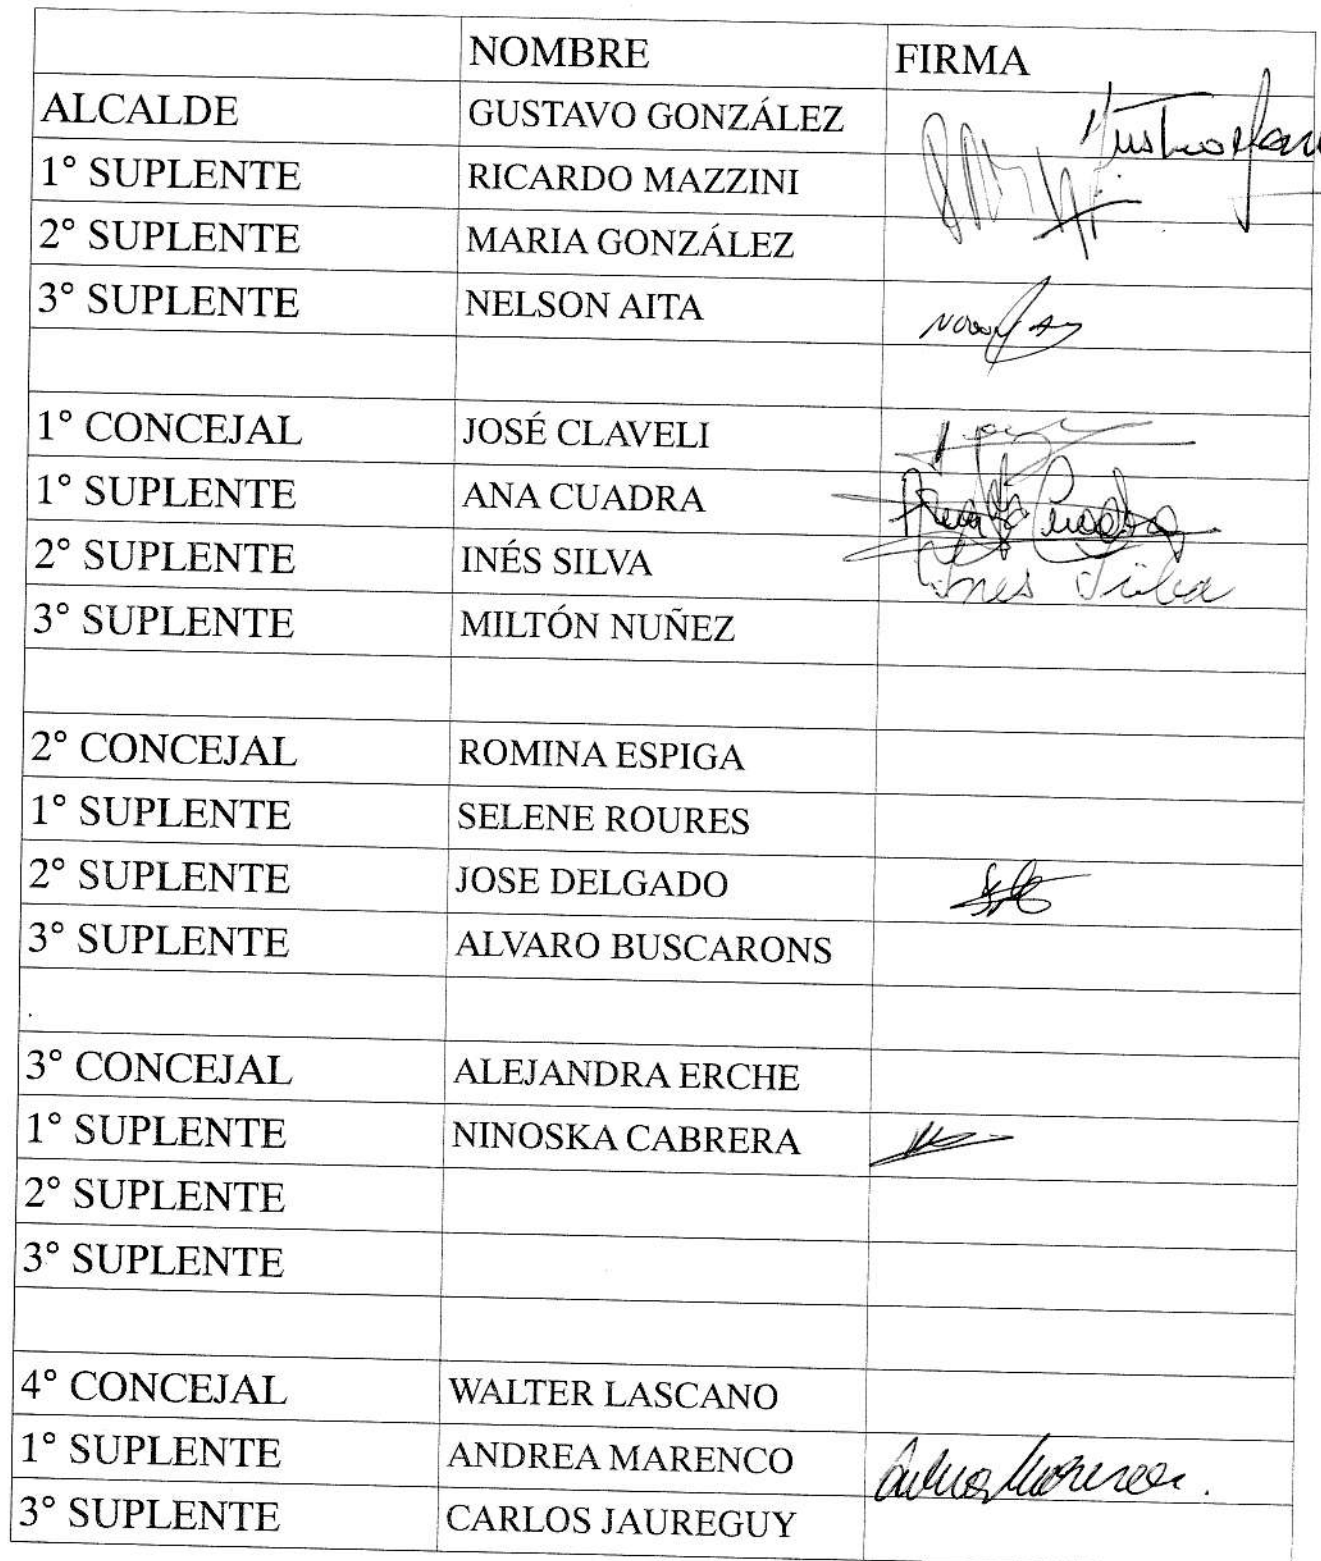 NOMBRE FIRMA
ALCALDE GUSTAVO GONZÁLEZ
1° SUPLENTE RICARDO MAZZINI
2° SUPLENTE MARIA GONZÁLEZ
3° SUPLENTE NELSON AITA
1° CONCEJAL JOSÉ CLAVELI
1° SUPLENTE ANA CUADRA
2° SUPLENTE INÉS SILVA Ines Silva
3° SUPLENTE MILTÓN NUÑEZ
2° CONCEJAL ROMINA ESPIGA
1° SUPLENTE SELENE ROURES
2° SUPLENTE JOSE DELGADO
3° SUPLENTE ALVARO BUSCARONS
3° CONCEJAL ALEJANDRA ERCHE
1° SUPLENTE NINOSKA CABRERA
2° SUPLENTE
3° SUPLENTE
4° CONCEJAL WALTER LASCANO
1° SUPLENTE ANDREA MARENCO
3° SUPLENTE CARLOS JAUREGUY